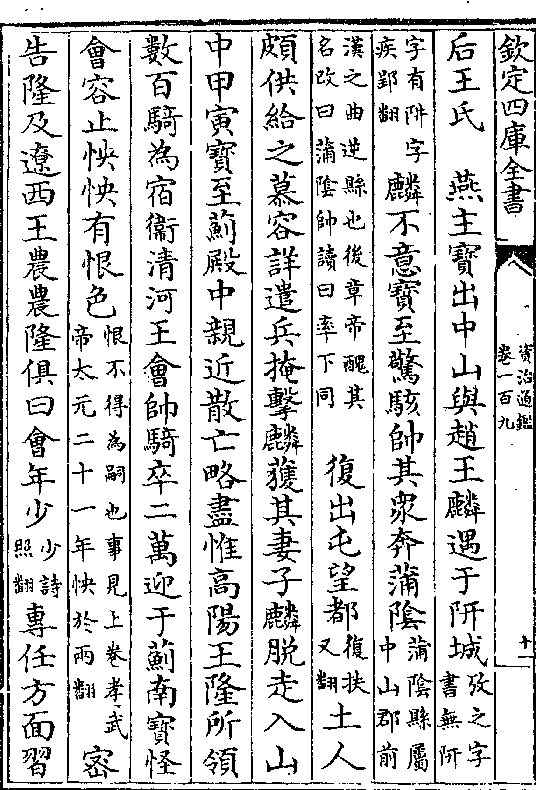 欽定四庫全書
資治通鑑
卷一百九
十一
后王氏　燕主寶出中山與趙王麟遇于城攷之字書無
字有阱字疾郢翻麟不意寶至驚駭帥其衆奔蒲陰蒲陰縣屬中山郡前
漢之曲逆縣也後章帝醜其名改曰蒲陰帥讀曰率下同復出屯望都復扶又翻土人
頗供給之慕容詳遣兵掩擊麟獲其妻子麟脱走入山
中甲寅寶至薊殿中親近散亡略盡惟高陽王隆所領
數百騎為宿衞清河王會帥騎卒二萬迎于薊南寶怪
會容止怏怏有恨色恨不得為嗣也事見上卷孝武帝太元二十一年怏於兩翻密
告隆及遼西王農農隆俱曰會年少少詩照翻專任方面習